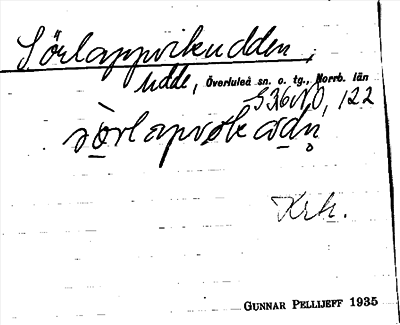 Sörlappvikudden,
Udde, Överluleå sn. o. tg., Norrb. län
S36NO, 122
Krh.
GUNNAR PELLIJEFF 1935